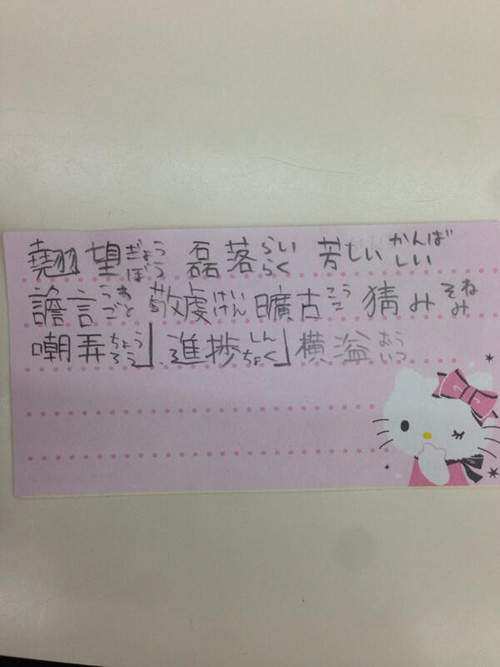 翹望ぎょうぼう 磊落らいらく 芳しいかんばしい
譫言うわごと 敬虔けいけん 曠古こうこ 猜みそねみ
嘲弄ちょうろう」進捗しんちょく」横溢おういつ